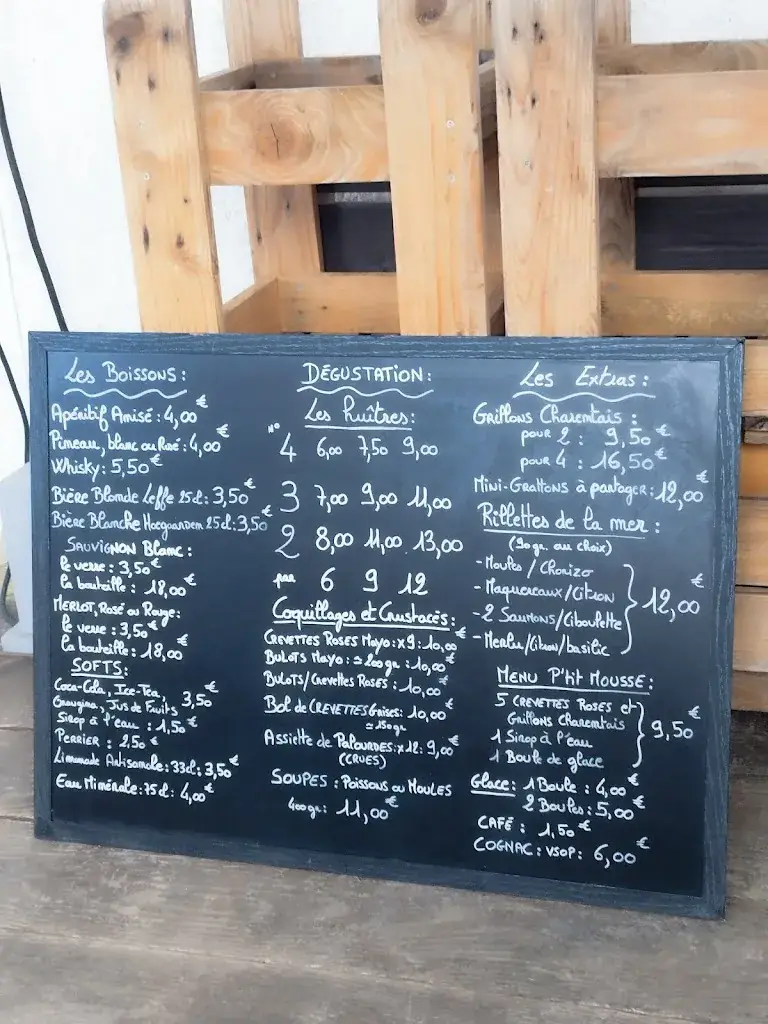 Les Boissons :
Apéritif Anisé : 4,00 €
Pineau, blanc ou Rosé : 4,00 €
Whisky : 5,50 €
Bière Blonde Leffe 25cl : 3,50 €
Bière Blanche Hoegaarden 25cl : 3,50 €
SAUVIGNON BLANC :
le verre : 3,50 €
la bouteille : 18,00 €
MERLOT, Rosé ou Rouge :
le verre : 3,50 €
la bouteille : 18,00 €
SOFTS :
Coca-Cola, Ice-Tea,
Orangina, Jus de Fruits 3,50 €
Sirop à l'eau : 1,50 €
PERRIER : 2,50 €
Limonade Artisanale : 33cl : 3,50 €
Eau Minérale : 75cl : 4,00 €
DÉGUSTATION :
Les huîtres :
N°
4 6,00 7,50 9,00
3 7,00 9,00 11,00
2 8,00 11,00 13,00
par 6 9 12
Coquillages et Crustacés :
CREVETTES ROSES MAYO : x9 : 10,00 €
BULOTS MAYO : ≃ 200gr : 10,00 €
BULOTS/Crevettes ROSES : 10,00 €
Bol de CREVETTES Grises : 10,00 €
≃ 150gr
Assiette de PALOURDES : x12 : 9,00 €
(CRUES)
SOUPES : Poissons ou MOULES
400gr : 11,00 €
Les Extras :
Grillons Charentais :
pour 2 : 9,50 €
pour 4 : 16,50 €
Mini-Grattons à partager : 12,00 €
Rillettes de la mer :
(90gr. au choix)
- Moules / Chorizo
- Maquereaux / Citron
- 2 Saumons / Ciboulette
- Merlu / citron / basilic
12,00 €
MENU P'tit MOUSSE :
5 CREVETTES ROSES et
Grillons Charentais
1 Sirop à l'eau
1 Boule de glace
9,50 €
Glace : 1 Boule : 4,00 €
2 Boules : 5,00 €
CAFÉ : 1,50 €
COGNAC : VSOP : 6,00 €